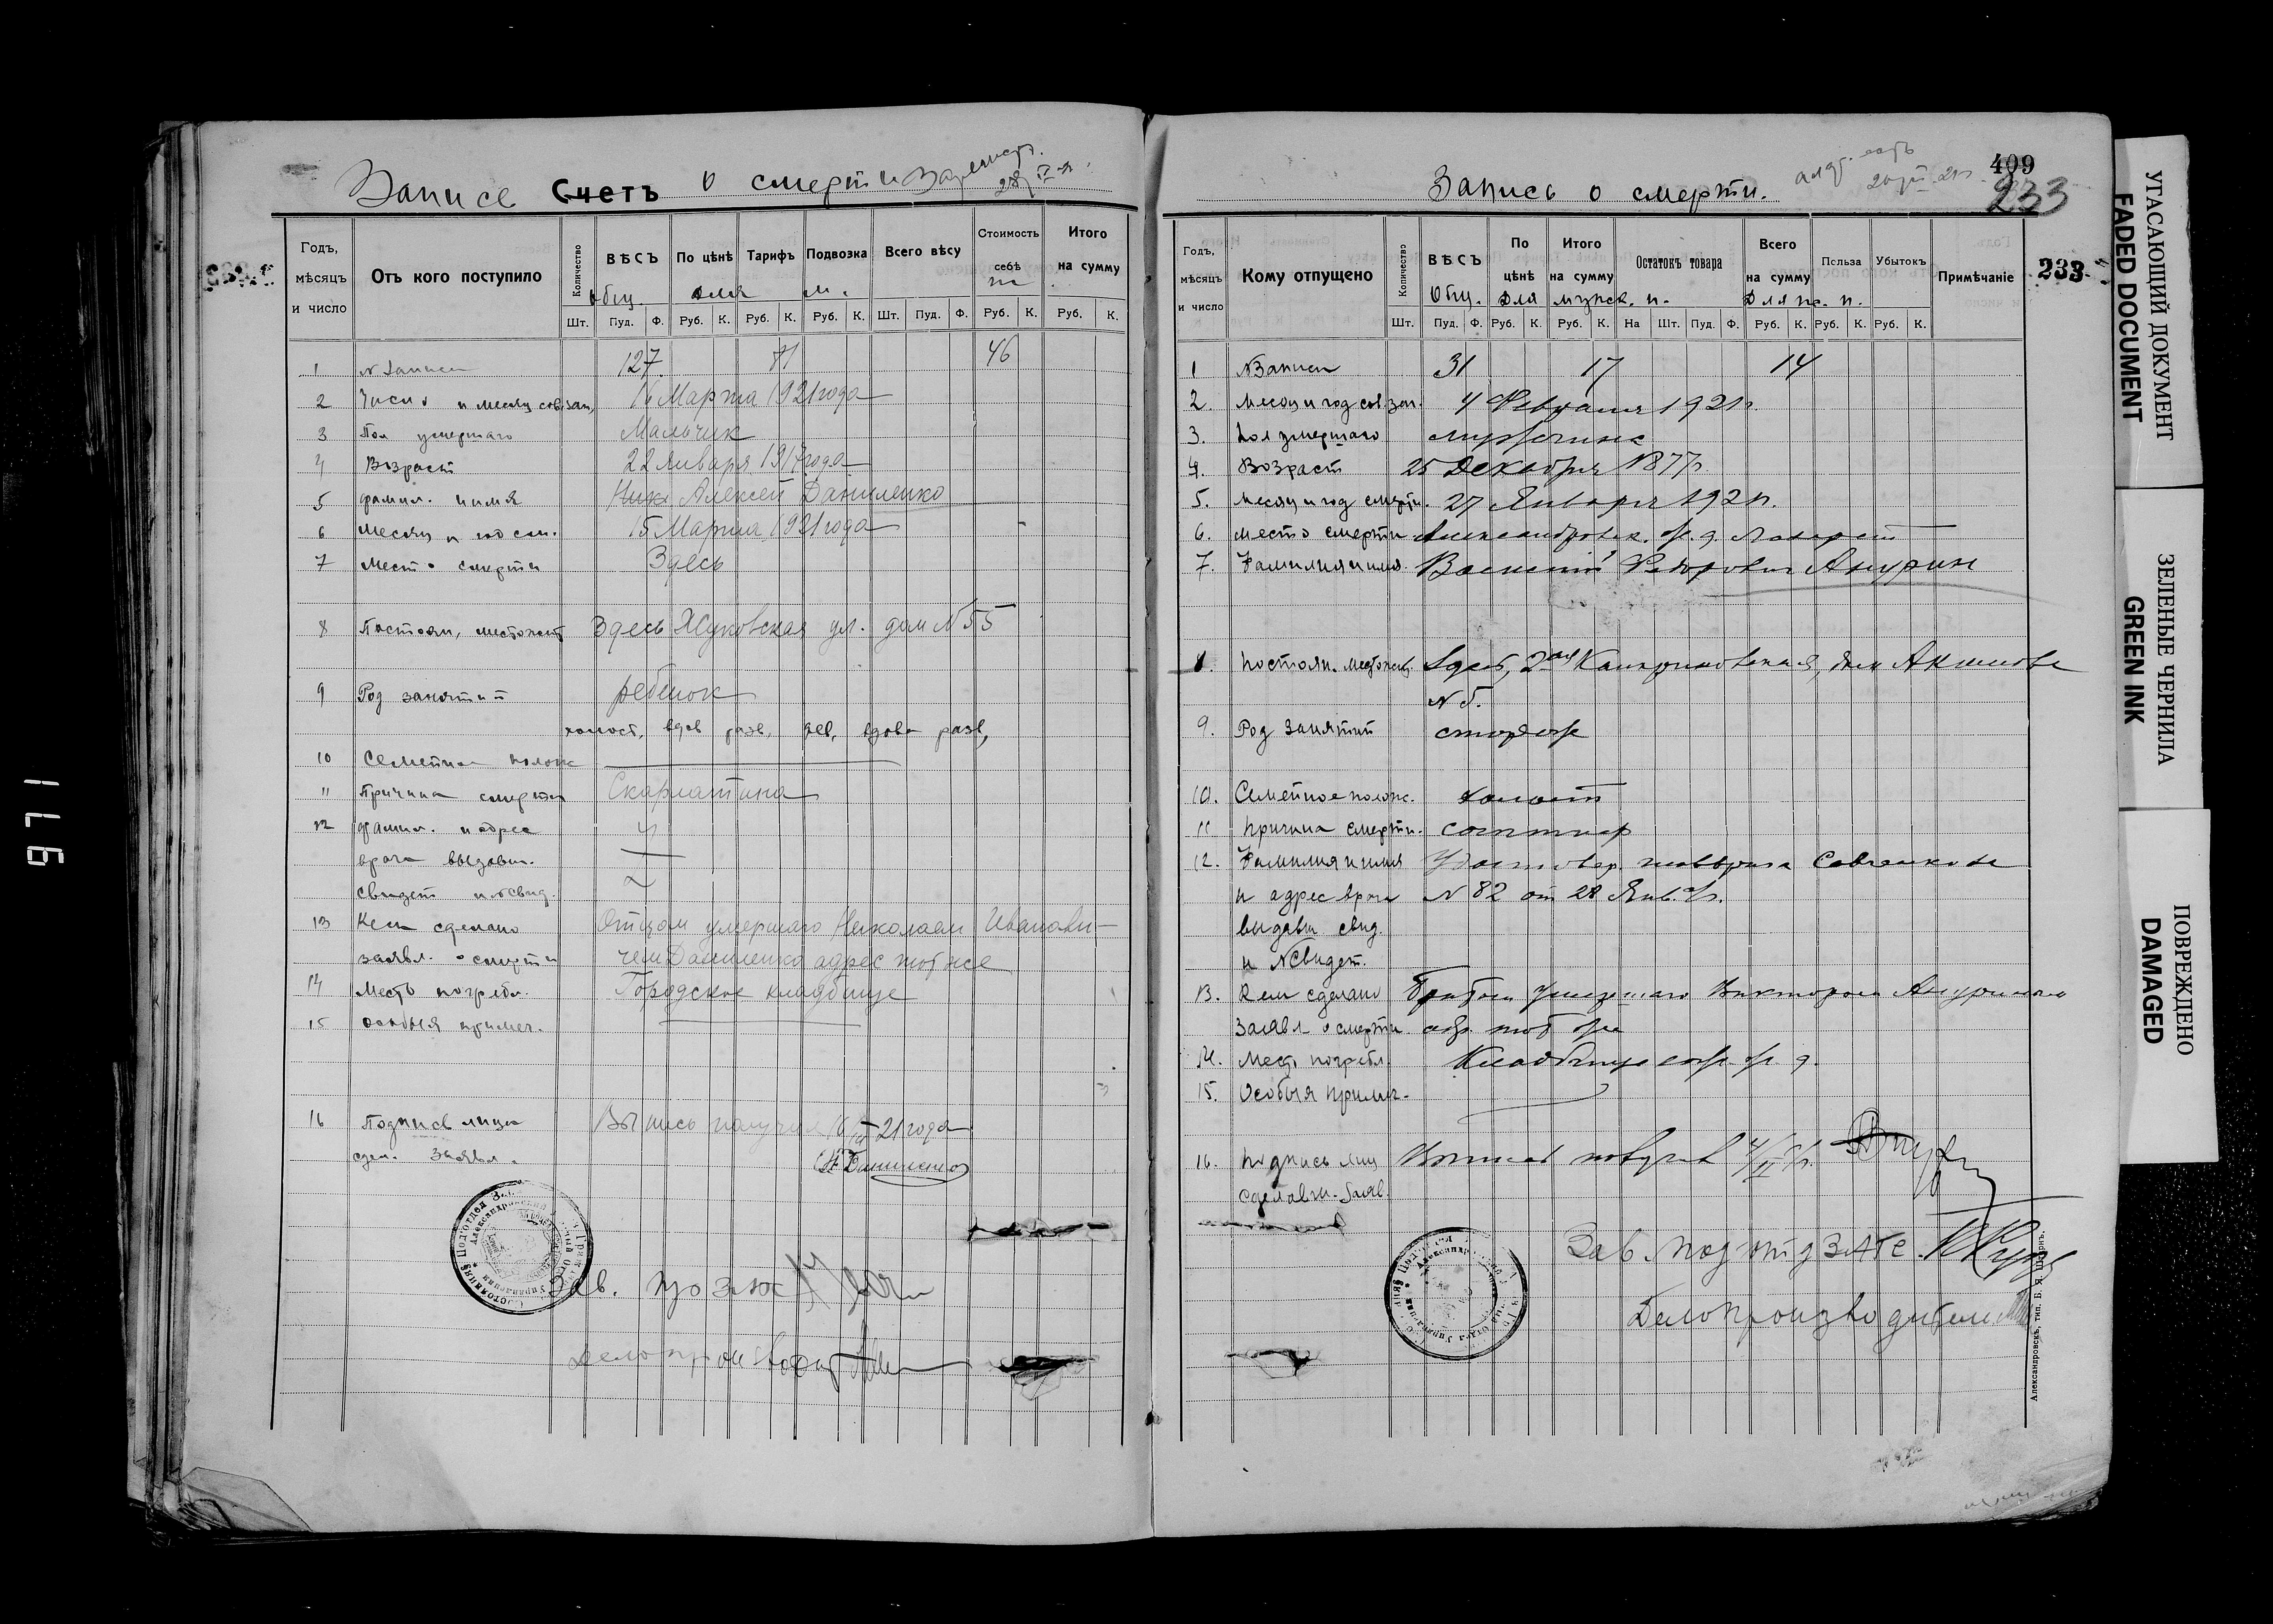 Записе Счетъ о смерти
28/IV-21
Годъ, мѣсяцъ и число
Отъ кого поступило
Количество
ВѢСЪ
По цѣнѣ
Тарифъ
Подвозка
Всего вѣсу
Стоимость себѣ
Итого на сумму
Общ. для м.
Шт. Пуд. Ф. Руб. К. Руб. К. Руб. К. Шт. Пуд. Ф. Руб. К. Руб. К.
1 N записи 127. 81 46
2 Число и месяц сов. зап. 16 Марта 1921 года
3 Пол умершаго Мальчик
4 Возраст 22 января 1917 года
5 фамил. и имя Алексей Даниленко
6 месяц и год см. 15 Марта 1921 года
7 Место смерти Здесь
8 Постоян. местожит Здесь Жуковская ул. дом N 55
9 Род занятий ребенок
холост, вдов разв, дев, вдова разв,
10 Семейная полож
11 Причина смерти Скарлатина
12 фамил. и адрес
врача выдавш.
свидет и N свид.
13 Кем сделано Отцом умершаго Николаем Иванови-
заявл. о смерти чем Даниленко адрес тот же
14 Место погребл. Городское кладбище
15 особыя примеч.
16 Подпись лица Выпись получил 16/III 21 года
сдел. заявл. Даниленко
Зав.
делопроизводит
Запись о смерти.
409
233
233
Годъ, мѣсяцъ и число
Кому отпущено
Количество
ВѢСЪ
По цѣнѣ
Итого на сумму
Остатокъ товара
Всего на сумму
Польза
Убытокъ
Примѣчаніе
Общ. Для мужск. п. Для ж. п.
Шт. Пуд. Ф. Руб. К. Руб. К. На Шт. Пуд. Ф. Руб. К. Руб. К. Руб. К.
1 N Записи 31 17 14
2. месяц и год сов. зап. 4 Февраля 1921 г.
3. Пол умершаго мужчина
4. Возраст 25 Декабря 1877 г.
5. месяц и год смерти. 27 Января 1921 г.
6. место смерти Александровск. ж. д. Лазарет
7. Фамилия и имя. Василий Федорович Анурин
8. Постоян. местожит. Здесь, 2ая дом Акимова
N 5.
9. Род занятий сторож
10. Семейное полож. холост
11 причина смерти. сыпн тиф
12. Фамилия и имя Удостовер. Савченкова
и адрес врача N 82 от 28 Янв. 21 г.
выдавш свид.
и N свидет.
13. Кем сделано братом умершаго Виктором Ануриным
Заявл о смерти адр. тот же
14. Место погребл. Кладбище ж. д.
15. Особыя примеч.
16. подпись лиц Выпись получил 4/II 21 г.
сделавш. заяв.
Зав. подотд ЗАГС
Делопроизводитель
Александровскъ, тип. Б. Я. Штернъ.
УГАСАЮЩИЙ ДОКУМЕНТ
FADED DOCUMENT
ЗЕЛЕНЫЕ ЧЕРНИЛА
GREEN INK
ПОВРЕЖДЕНО
DAMAGED
971